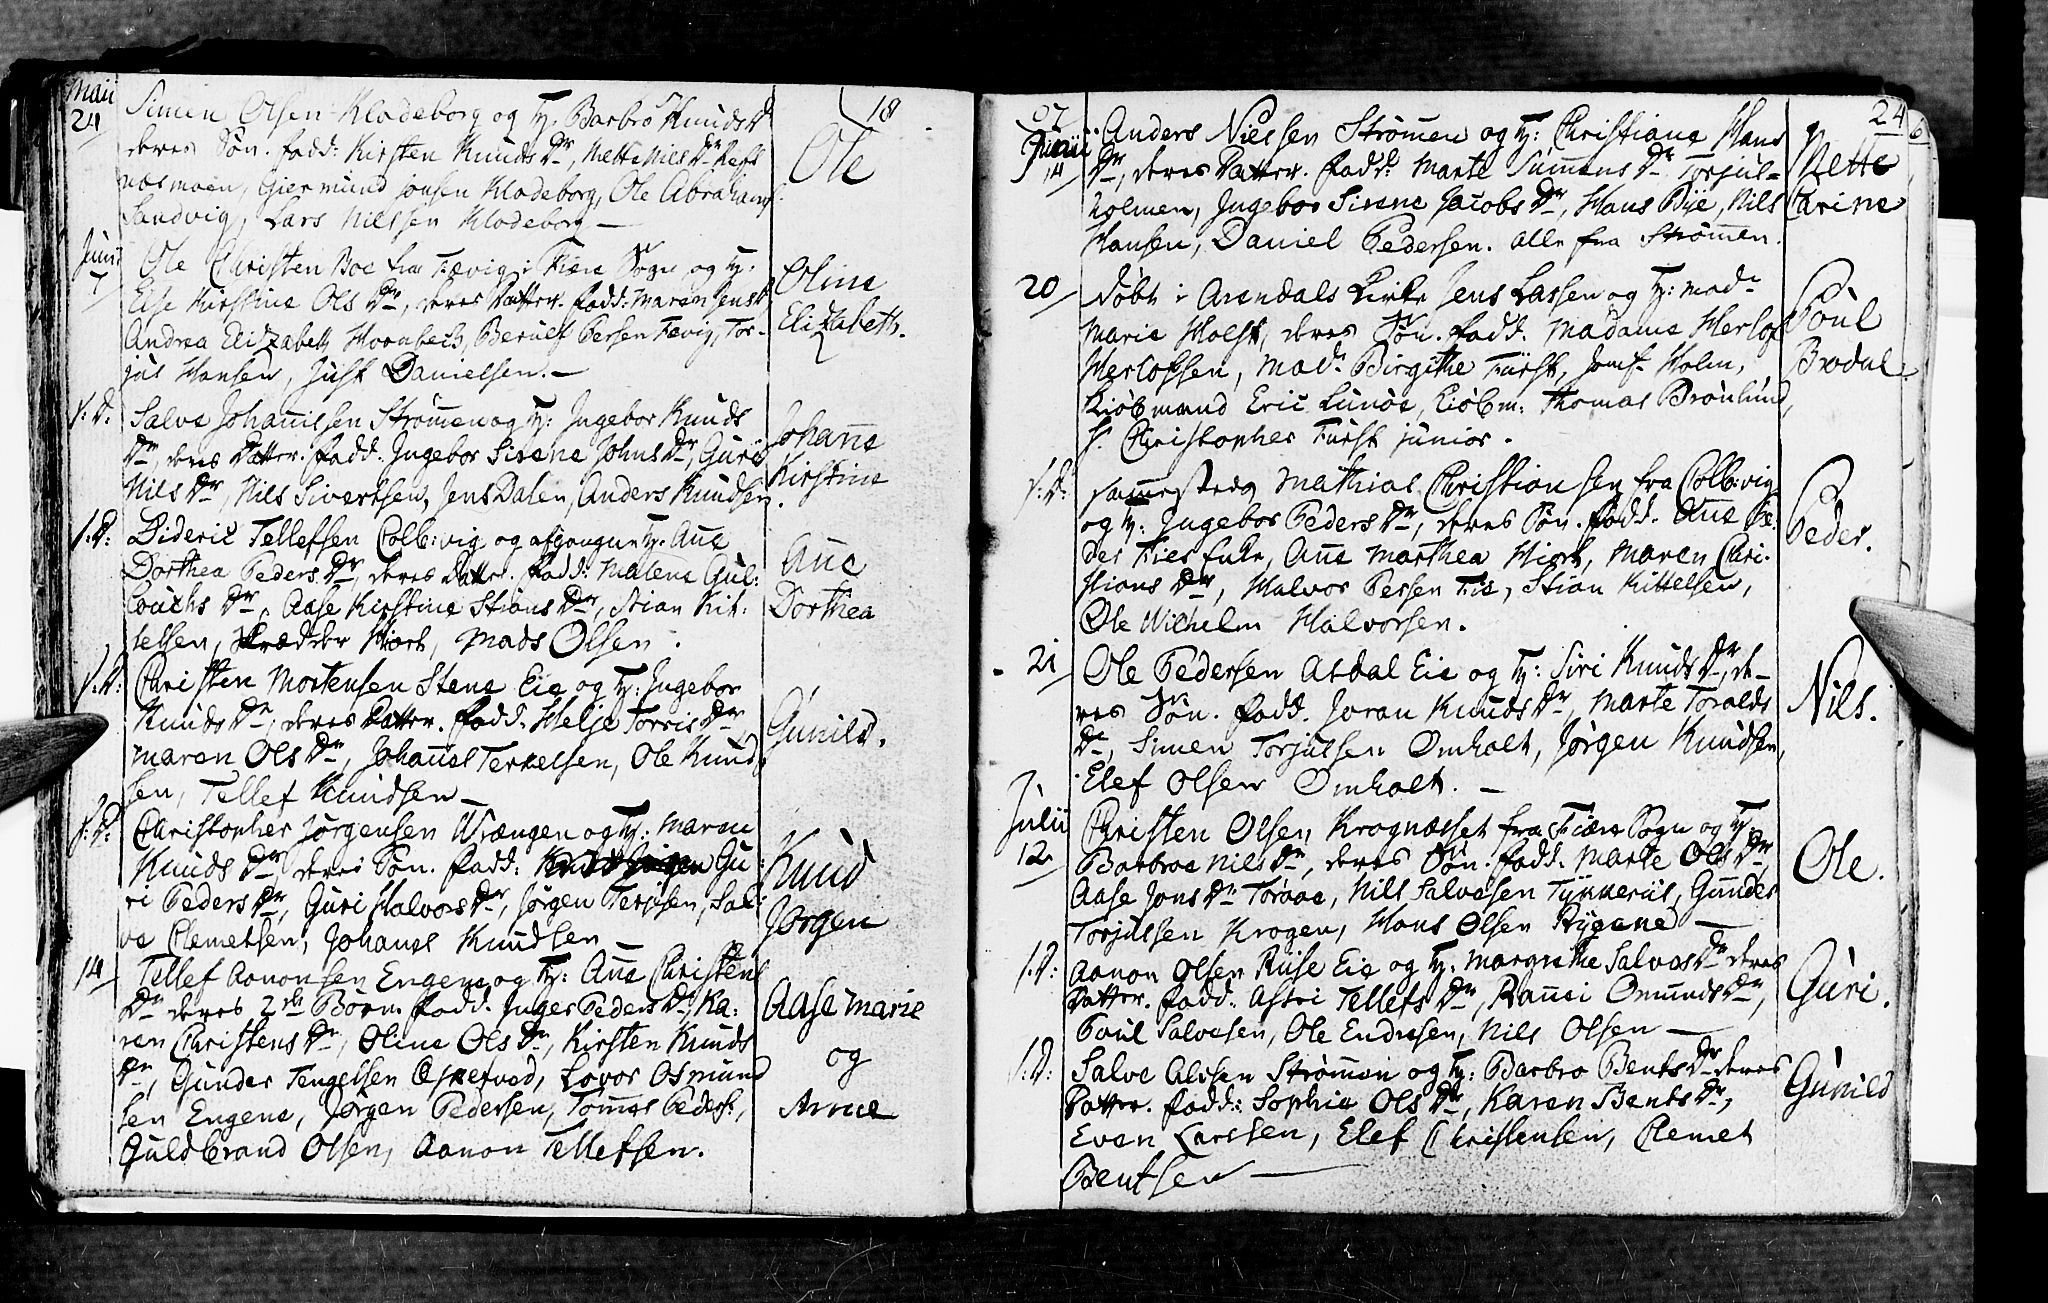 Maii
24
Simen Olsen Klodeborg og H: Barbro Knuds Dr
deres Søn. fadd: Kirsten Knuds Dr, Mette Niels Dr
næsmoen, Giermund Jonsen Klodeborg, Ole Abrahams.
Sandvig, Lars Nilssen Klodeborg —
18
Ole
Junii
7
Ole Christen Boe fra Fævig i Fiære Sogn og H:
Else Kirstine Ols Dr, deres Datter. fadd: Maren Jens Dr
Andrea Elizabeth Hornbech, Beruld Persen Fævig, Tor-
jus Hansen, Just Danielsen. —
Oline
Elizabeth.
s: D:
Salve Johannissen Strømen og H: Ingebor Knuds
Dr, deres Datter. fadd: Ingebor Sirene Johns Dr, Guri
Nils Dr, Nils Sivertsen, Jens Dalen, Anders Knudsen.
Johanne
Kirstine
s: D:
Dideric Tellefsen Colb:vig og afgangne H: Ane
Dorthea Peders Dr, deres Datter. fadd: Malene Gul:
Dr, Aase Kirstine Stians Dr, Stian Kit-
telsen, Skrædder Hiort, Mads Olsen.
Ane
Dorthea
s: D:
Christen Mortensen Stene Eie og H: Ingebor
Knuds Dr, deres Datter. fadd: Helje Torris Dr,
Maren Ols Dr, Johannes Terkelsen, Ole Knud
sen, Tellef Knudsen —
Gunild.
s: D:
Christopher Jørgensen Wrængen og H: Maren
Knuds Dr, deres Søn. fadd: Gu
ri Peders Dr, Guri Halvors Dr, Jørgen Terjesen, Sal-
ve Clemetsen, Johanes Knudsen —
Knud
Jørgen
14
Tellef Aanonsen Engene og H: Ane Christens
Dr deres 2de Børn. fadd. Inger Peders Dr, Ka:
ren Christens Dr, Oline Ols Dr, Kirsten Knuds
Dr, Gunder Tengelsen Espetved, Lovor Osmund
sen Engene, Jørgen Pedersen, Tomas Peders:,
Guldbrand Olsen, Aanon Tellefsen.
Aase Marie
og
Anne
24
Junii
14
Anders Nielsen Strømen og H: Christiane Hans
Dr, deres Datter. fadd: Marte Simens Dr Torjus-
holmen, Ingebor Sirene Jacobs Dr, Hans Bye, Nils
Hansen, Daniel Pedersen. alle fra Strømen.
Mette
Carine
20
Døbt i Arendals Kirke Jens Lassen og H: Mad:
Marie Holst, deres Søn. fadd. Madame Herlof
Herlofsen, Mad: Birgithe Fürst, Jomf: Holm,
Kiøbmand Eric Lunøe, Kiøbm: Thomas Brønlund,
H. Christopher Fürst junior.
Povl
Brodal.
s: D:
samesteds Mathias Christiansen fra Colb:vig
og H: Ingebor Peders Dr, deres Søn. fadd. Ane Pe:
der Fies Enke, Ane Marthea Hiort, Maren Chri-
stians Dr, Halvor Persen Fie, Stian Kittelsen,
Ole Wilhelm Halvorsen.
Peder.
21
Ole Pedersen Asdal Eie og H: Siri Knuds Dr, de-
res Søn. fadd. Joran Knuds Dr, Marte Toralds
Dr, Simen Torjussen Omholt, Jørgen Knudsen,
Elef Olsen Omholt. —
Nils.
Julii
12
Christen Olsen Krognæsset fra Fiære Sogn og H:
Barbroe Nils Dr, deres Søn. fadd. Marte Ols Dr,
Aase Jons Dr Torvae, Nils Salvesen Tykkeriis, Gunder
Torjussen Krogen, Hans Olsen Rygene —
Ole.
s: D:
Aanon Olsen Riise Eie og H: Margrethe Salves Dr deres
Datter. fadd: Astri Tellefs Dr, Rannei Omunds Dr,
Povl Salvesen, Ole Endresen, Nils Olsen —
Guri.
s: D:
Salve Alvsen Strømen og H: Barbro Bents Dr deres
Datter. fadd: Sophie Ols Dr, Karen Bents Dr,
Even Larssen, Elef Christensen, Clemet
Bentsen —
Gunild